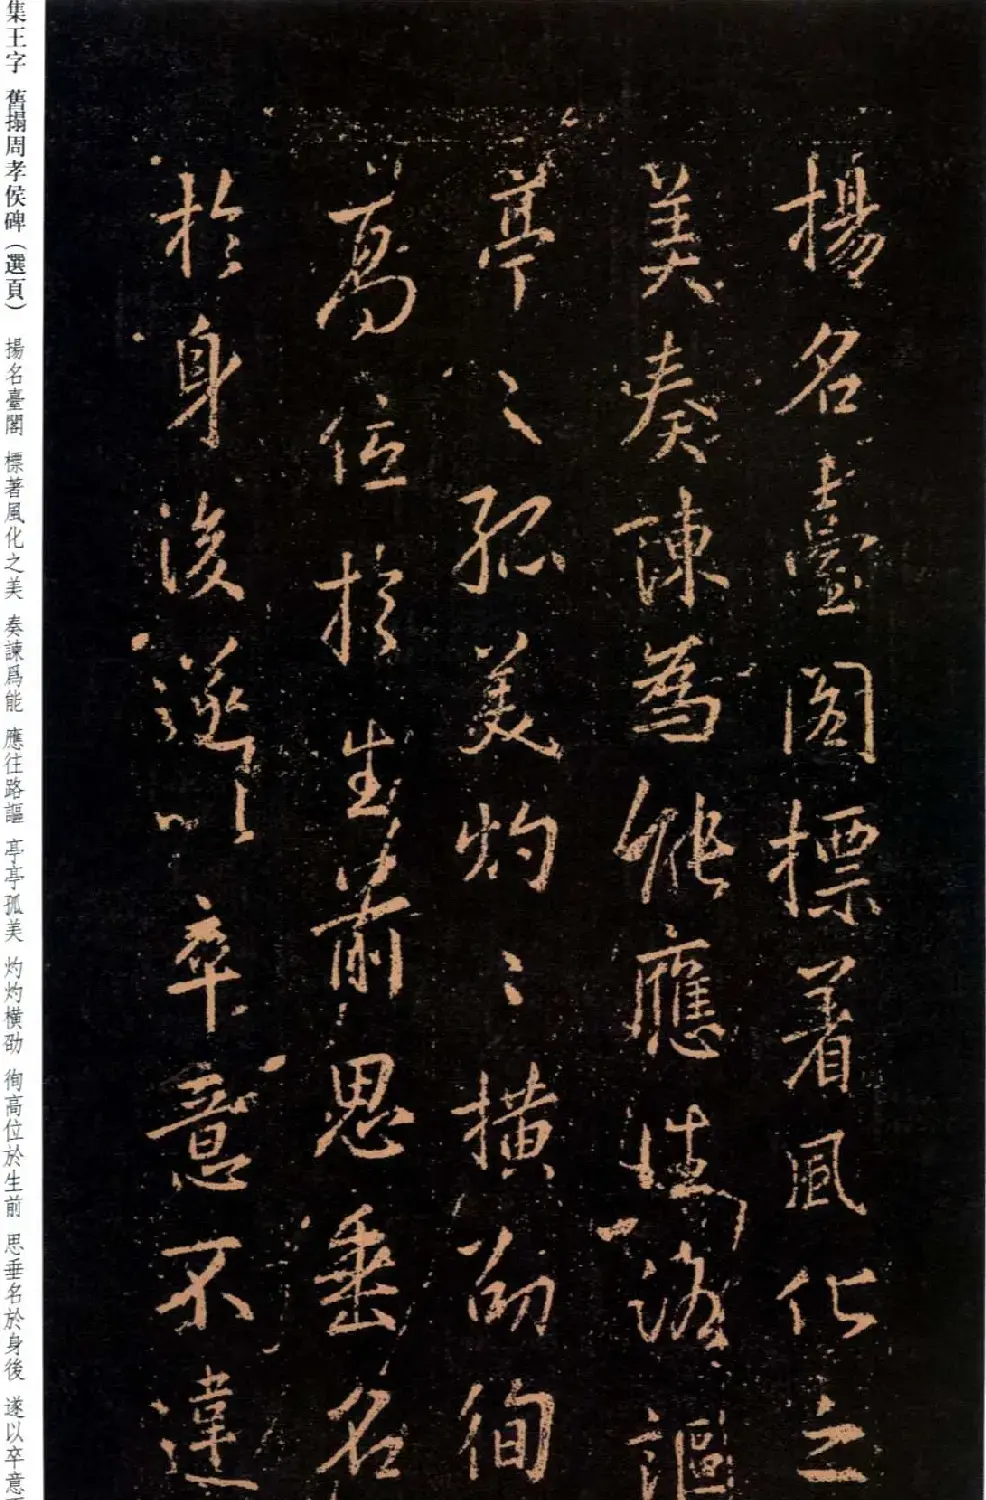 揚名臺閣標著風化之
美奏諫為能應往路謳
亭〻孤美灼〻橫劭徇
高位於生前思垂名
於身後遂以卒意不違
集王字 舊搨周孝侯碑（選頁） 揚名臺閣 標著風化之美 奏諫爲能 應往路謳 亭亭孤美 灼灼橫劭 徇高位於生前 思垂名於身後 遂以卒意